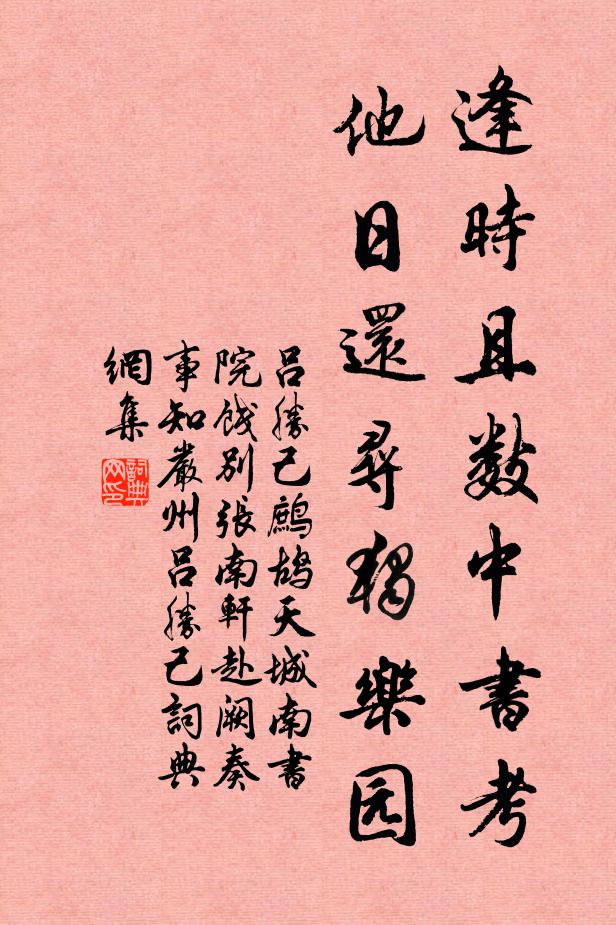 逢時且數中書考
他日還尋獨樂园
呂勝己鷓鴣天城南書
院餞别張南軒赴阙奏
事知嚴州呂勝己詞典
網集
詞典網印